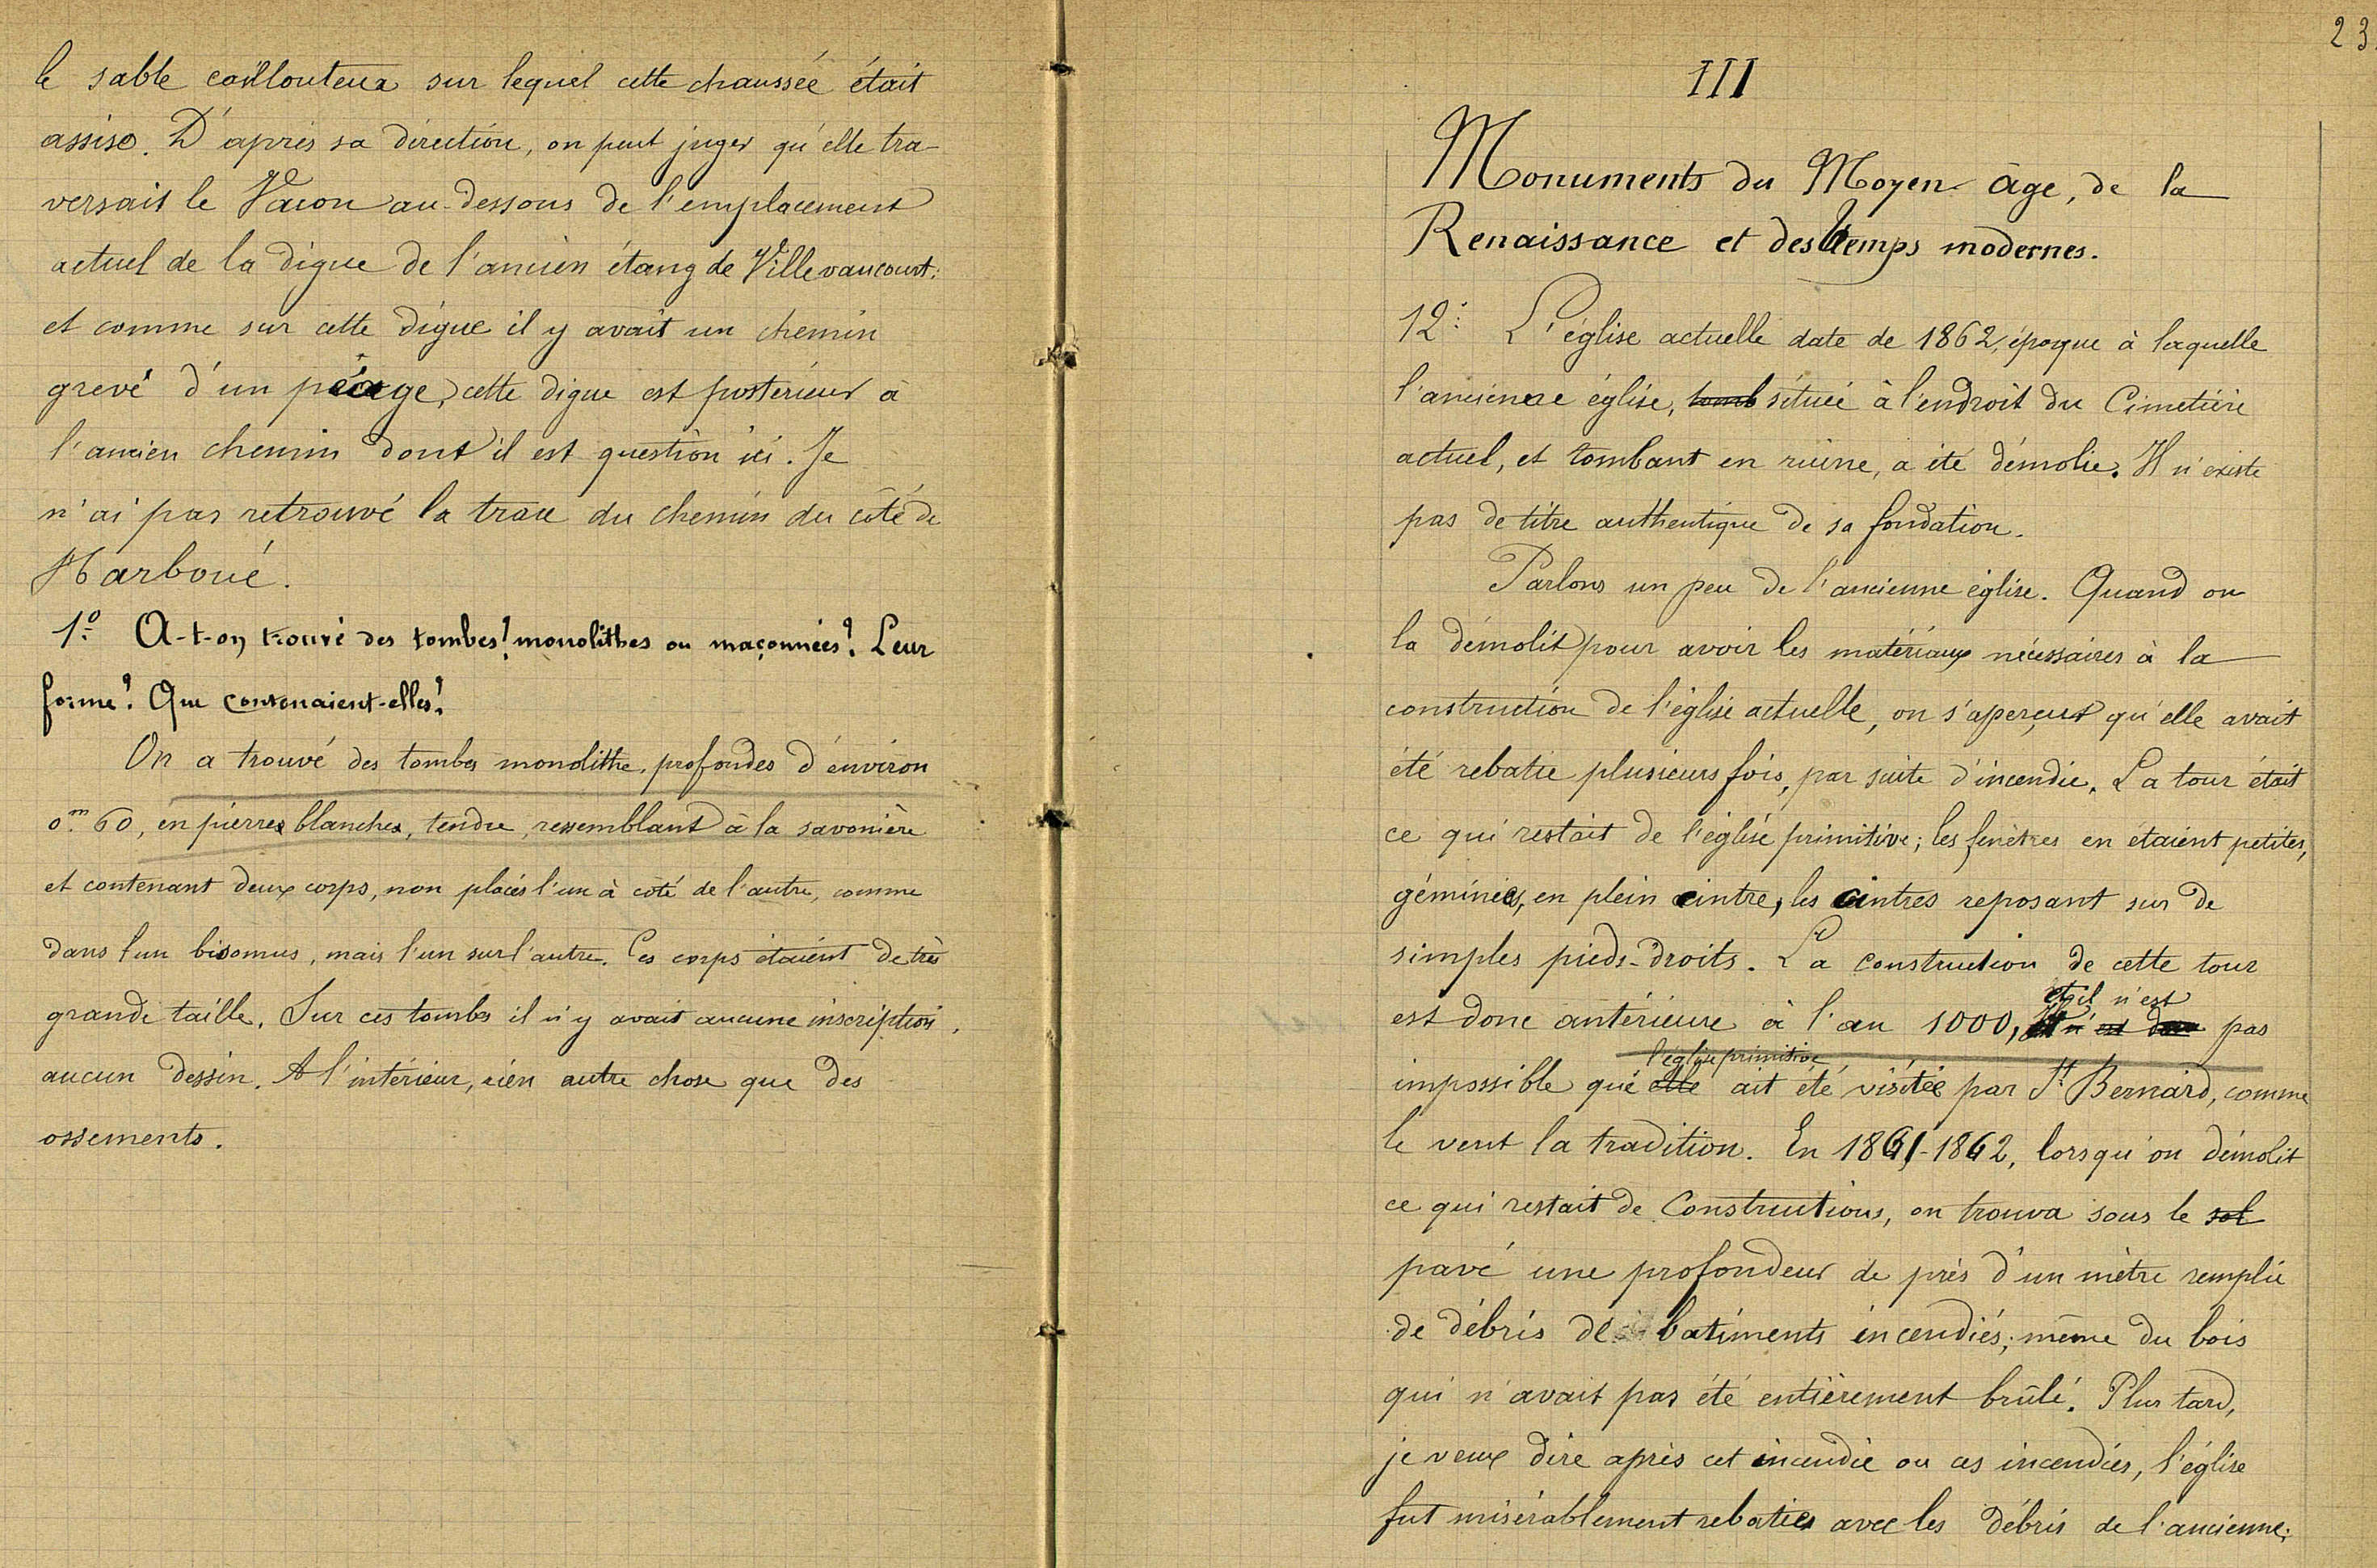 le sable caillouteux sur lequel cette chaussée était
assise. D'après sa direction, on peut juger qu'elle tra-
versait le Vacon au-dessous de l'emplacement
actuel de la digue de l'ancien étang de Villevaucourt;
et comme sur cette digue il y avait un chemin
grevé d'un péage, cette digue est postérieur à
l'ancien chemin dont il est question ici. Je
n'ai pas retrouvé la trace du chemin du côté de
Marboué.
1º. A-t-on trouvé des tombes? monolithes ou maçonnées? Leur
forme? Que contenaient-elles?
On a trouvé des tombes monolithe, profondes d'environ
0m.60, en pierres blanches, tendre, ressemblant à la savonière
et contenant deux corps, non placés l'un à côté de l'autre, comme
dans l'un bisomus, mais l'un sur l'autre. Ces corps étaient de très
grande taille. Sur ces tombes il n'y avait aucune inscription,
aucun dessin. A l'intérieur, rien autre chose que des
ossements.
23
III
Monuments du Moyen-âge, de la
Renaissance et des temps modernes.
12º. L'église actuelle date de 1862, époque à laquelle
l'ancienne église, tomb située à l'endroit du Cimetière
actuel, et tombant en ruine, a été démolie. Il n'existe
pas de titre authentique de sa fondation.
Parlons un peu de l'ancienne église. Quand on
la démolit pour avoir les matériaux nécessaires à la
construction de l'église actuelle, on s'aperçut qu'elle avait
été rebatie plusieurs fois, par suite d'incendie. La tour était
ce qui restait de l'église primitive; les fenêtres en étaient petites,
géminées, en plein cintre, les cintres reposant sur de
simples pieds-droits. La construction de cette tour
et il n'est
est donc antérieure à l'an 1000, n'est pas
l'église primitive
imposssible que elle ait été visitée par St Bernard, comme
le veut la tradition. En 1861-1862, lorsqu'on démolit
ce qui restait de Constructions, on trouva sous le sol
pavé une profondeur de près d'un mètre remplie
de débris de batiments incendiés; même du bois
qui n'avait pas été entièrement brûlé. Plus tard,
je veux dire après cet incendie ou ces incendies, l'église
fut misérablement rebatie avec les débris de l'ancienne;